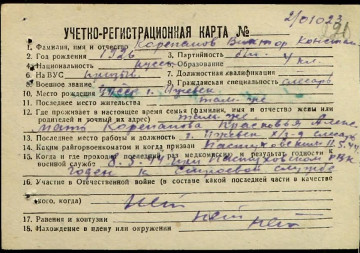 2/01023
91
УЧЕТНО-РЕГИСТРАЦИОННАЯ КАРТА №
1. Фамилия, имя и отчество Корепанов Виктор Констан.
2. Год рождения 1926 3. Партийность б/п
4. Национальность русс 5. Образование 4 кл.
6. На ВУС 7. Должностная квалификация
8. Военное звание 9. Гражданская специальность слесарь
10. Место рождения
11. Последнее место жительства там-же
12. Где проживает в настоящее время семья (фамилия, имя и отчество жены или
родителей и точный их адрес) там-же
мать Корепанова Прасковья Алекс
13. Последнее место работы и должность слесарь
14. Каким райгорвоенкоматом и когда призван Пастуховским 11.5.44
15. Когда и где проходил последний раз медкомиссию и результат годности к
военной службе 8.3.44 при Пастуховском РВК
годен к строевой службе
16. Участие в Отечественной войне (в составе какой последней части в качестве
кого, когда) Нет
17. Ранения и контузии нет
18. Нахождение в плену или окружении нет